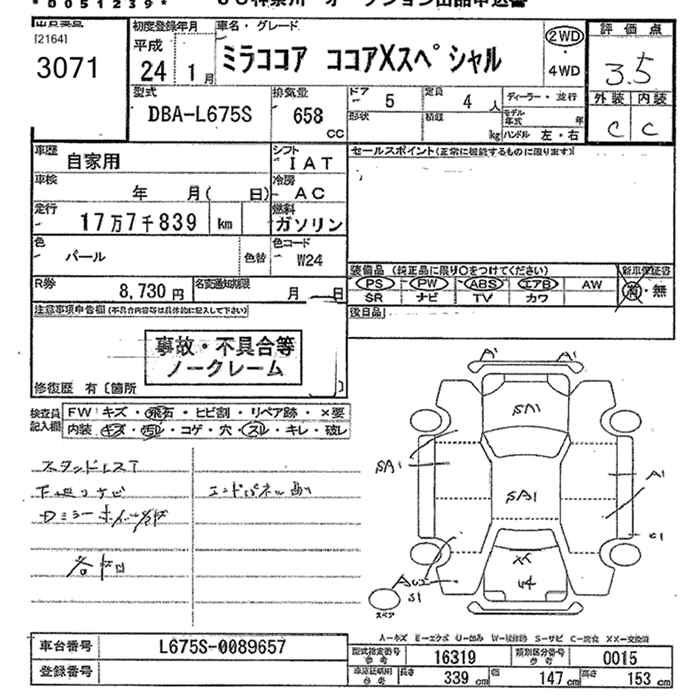 *0051239*
[2164]
3071
初度登録年月
平成
24年 1月
車名・グレード
ミラココア ココアXスペシャル
2WD
・
4WD
評価点
3.5
外装 内装
C C
型式
DBA-L675S
排気量
658
CC
ドア
5
定員
4人
形状
積載
kg
ディーラー・並行
モデル年式 年
ハンドル 左・右
車歴
自家用
シフト
IAT
車検
年 月( 日)
冷房
AC
走行
17万7千839 km
燃料
ガソリン
色
パール
色替
色コード
W24
R券
8,730円
名変通知期限
月 日
セールスポイント(正常に機能するものに限ります)
装備品 (純正品に限り○をつけてください)
PS PW ABS エアB AW
SR ナビ TV カワ
新車保証書
有・無
後日品
注意事項申告欄(不具合内容等は具体的に記入して下さい)
事故・不具合等
ノークレーム
修復歴 有〔箇所
検査員
記入欄
FW キズ・飛石・ヒビ割・リペア跡・×要
内装 キズ・汚レ・コゲ・穴・スレ・キレ・破レ
スタッドレス
エンドパネル
A' A'
SA1
SA1
SA1
A1
C1
XX
U4
S1
スペア
A-キズ E-エクボ U-凹み W-補修跡 S-サビ C-腐食 XX-交換済
車台番号
L675S-0089657
登録番号
型式指定番号
参考
16319
類別区分番号
参考
0015
車庫証明用
参考
長さ 339cm
幅 147cm
高さ 153cm